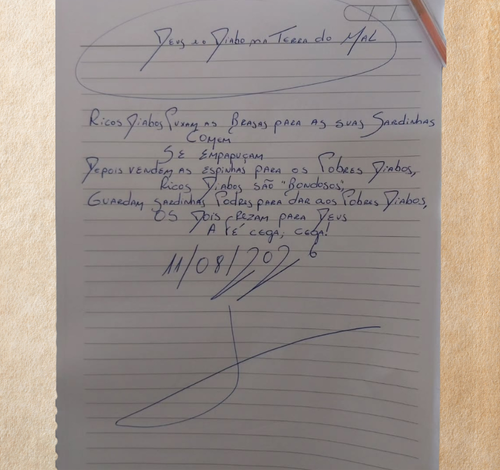 Deus e o Diabo na Terra do Mal
Ricos Diabos Puxam as Brasas para as suas Sardinhas
Comem
Se empapuçam
Depois vendem as espinhas para os Pobres Diabos,
Ricos Diabos são "Bondosos",
Guardam sardinhas Podres para dar aos Pobres Diabos,
Os Dois rezam para Deus
A fé cega, cega!
11/08/2026